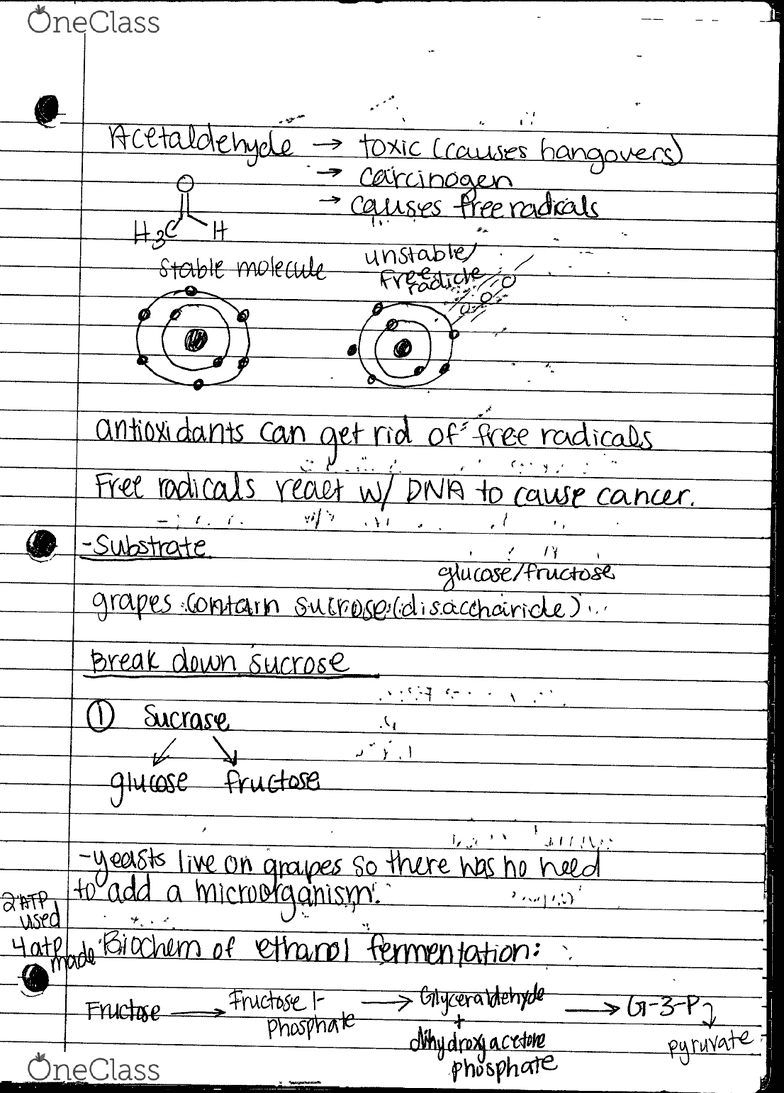 OneClass
Acetaldehyde → toxic (causes hangovers)
→ carcinogen
→ causes free radicals
O
H3C H
Stable molecule
unstable/
free
radicle
antioxidants can get rid of free radicals
Free radicals react w/ DNA to cause cancer.
-Substrate
glucose/fructose
grapes contain sucrose (disaccharide)
Break down sucrose
① Sucrase
glucose fructose
-yeasts live on grapes so there was no need
to add a microorganism.
2 ATP
used
4 atp
made
Biochem of ethanol fermentation:
Fructose → Fructose 1-
phosphate
→ Glyceraldehyde
+
dihydroxyacetone
phosphate
→ G-3-P
pyruvate
OneClass